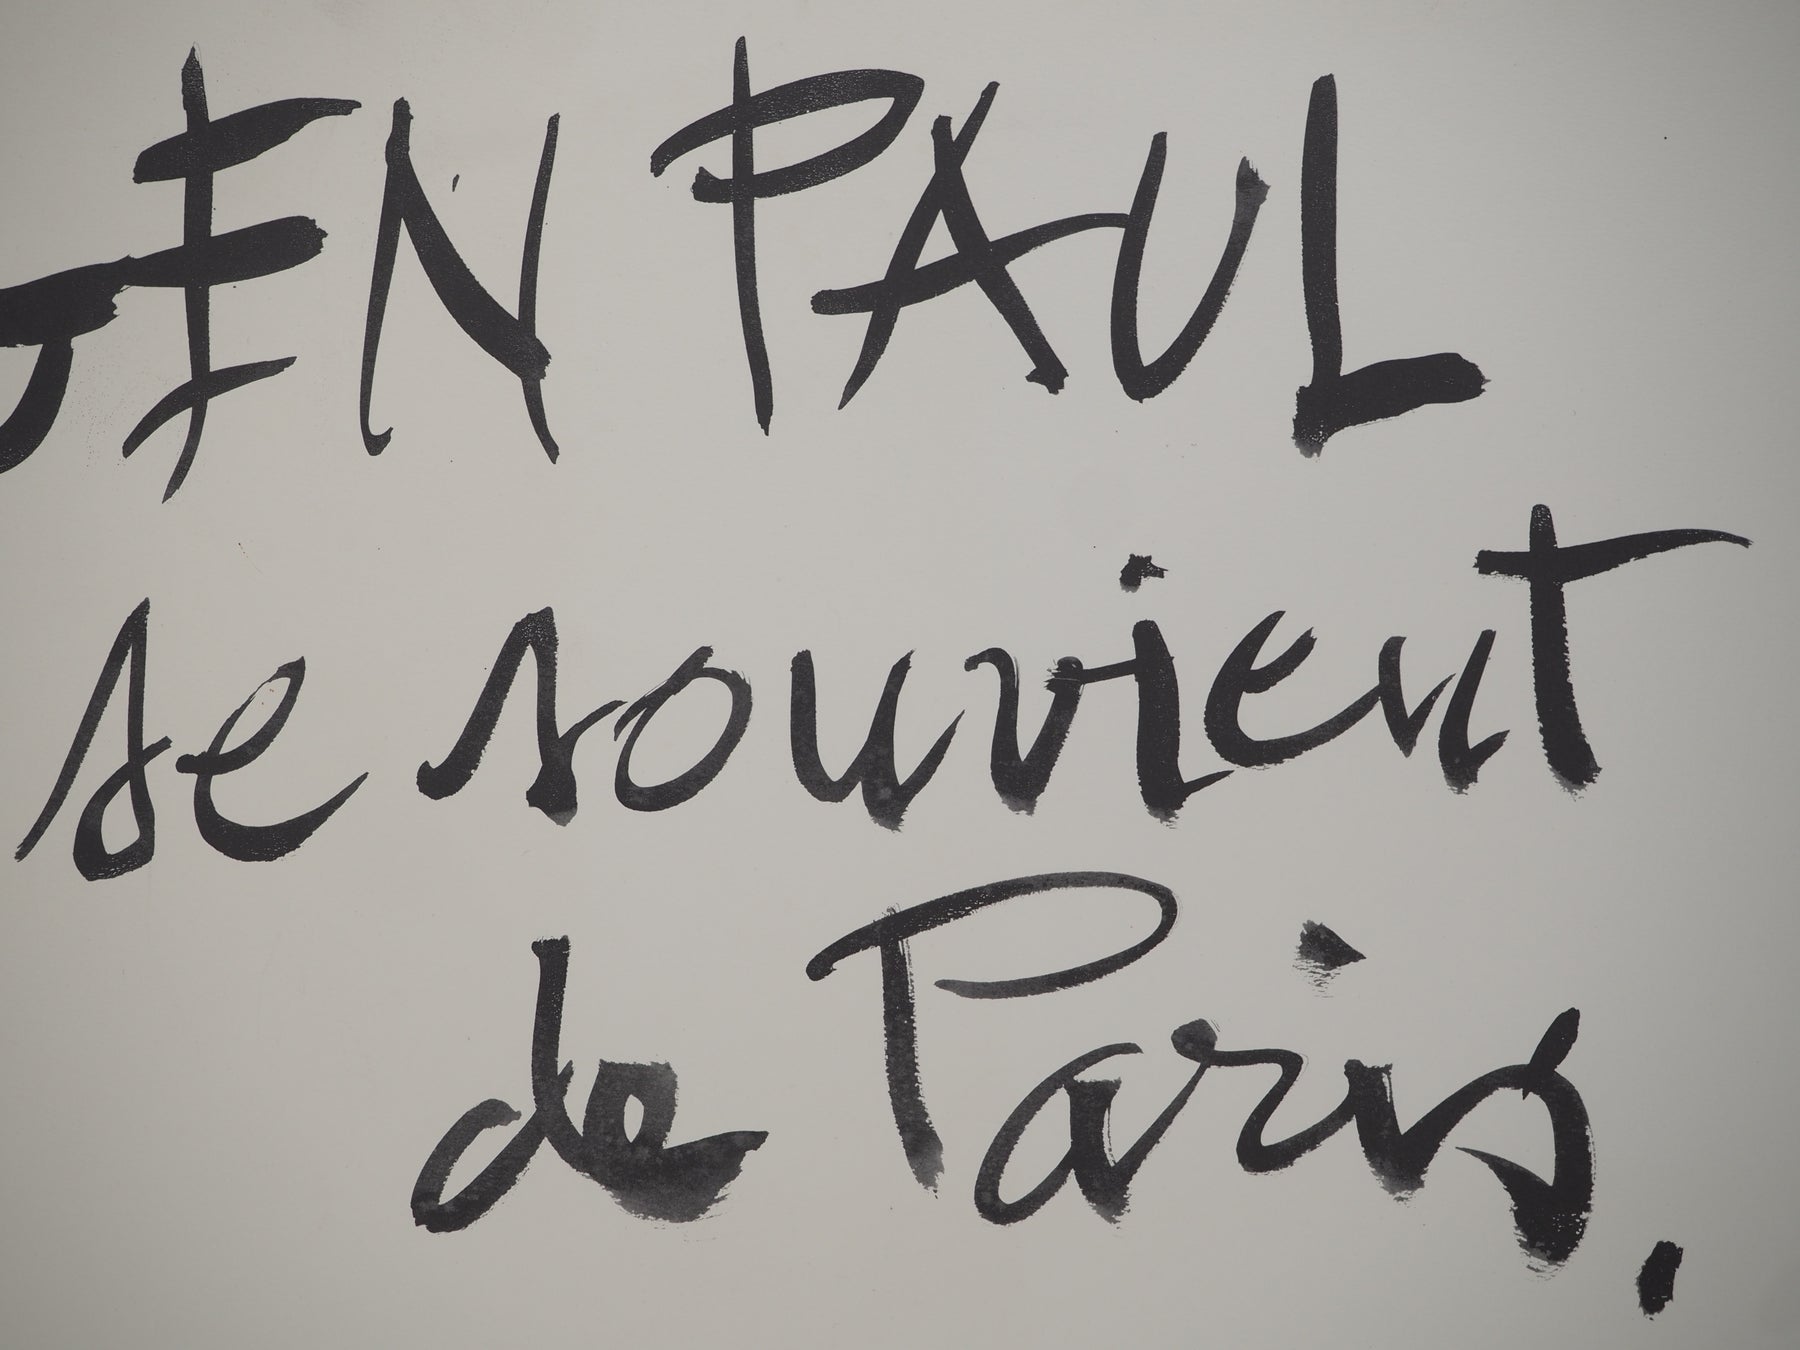 GEN PAUL
se souvient
de Paris.